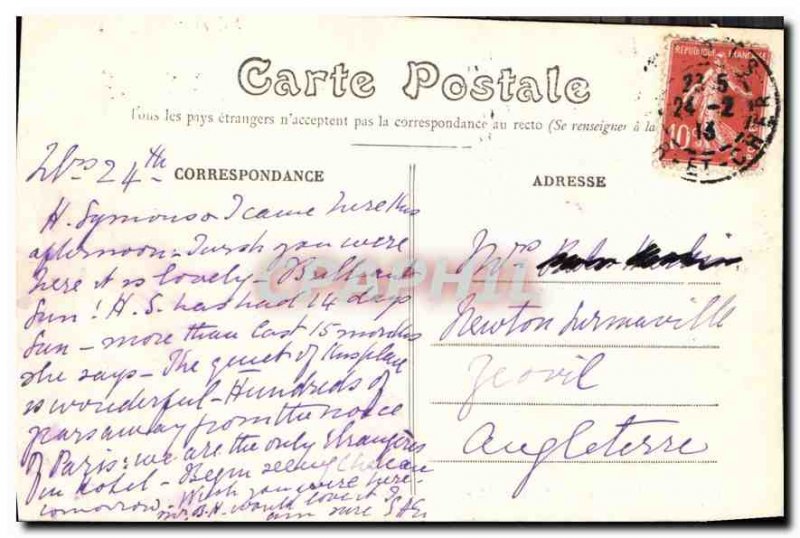 Carte Postale
Tous les pays étrangers n'acceptent pas la correspondance au recto (Se renseigner à la
CORRESPONDANCE
24th
H. Symons & I came here this
afternoon - I wish you were
here it is lovely. Bathed in
sun! H. S. has had 14 days
sun - more than last 15 months
she says - The quiet of this place
is wonderful - Hundreds of
years away from the noise
of Paris: we are the only étrangers
in hotel - Begin seeing Chateaux
tomorrow. Wish you were here
would love it I
am sure
ADRESSE
Mrs
Newton Surmaville
Yeovil
Angleterre
REPUBLIQUE FRANCAISE
10
23 5
24 - 2
13
ET-CHER
CPAPHIL